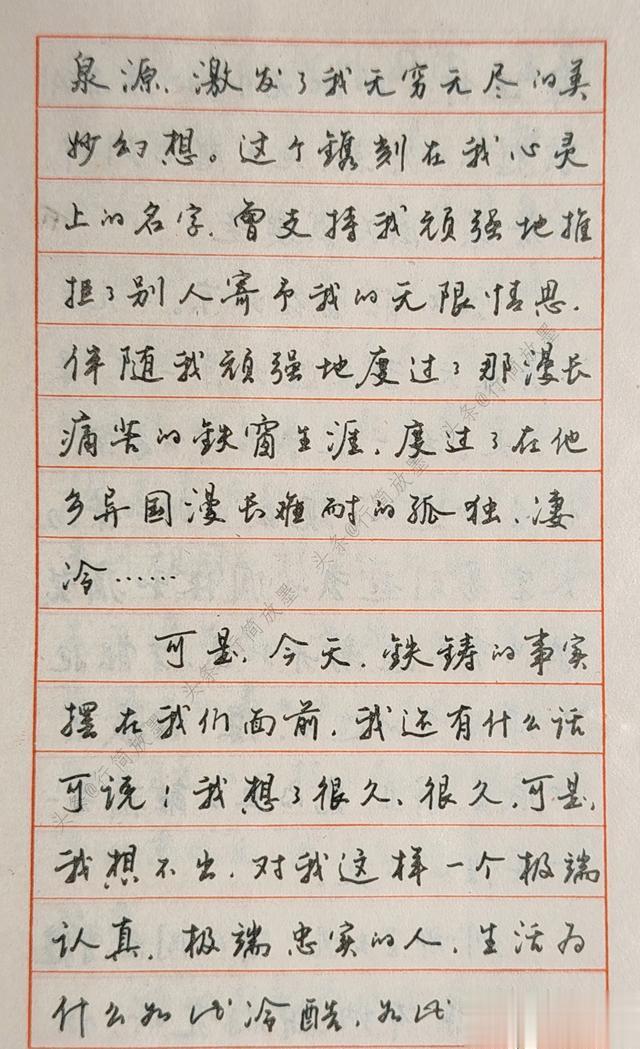 泉源,激发了我无穷无尽的美
妙幻想。这个镌刻在我心灵
上的名字,曾支持我顽强地推
拒了别人寄予我的无限情思,
伴随我顽强地度过了那漫长
痛苦的铁窗生涯,度过了在他
乡异国漫长难耐的孤独、凄
冷……
可是,今天,铁铸的事实
摆在我们面前,我还有什么话
可说!我想了很久、很久,可是,
我想不出,对我这样一个极端
认真、极端忠实的人,生活为
什么如此冷酷,如此
头条@行简放墨
头条@行简放墨
头条@行简放墨
头条@行简放墨